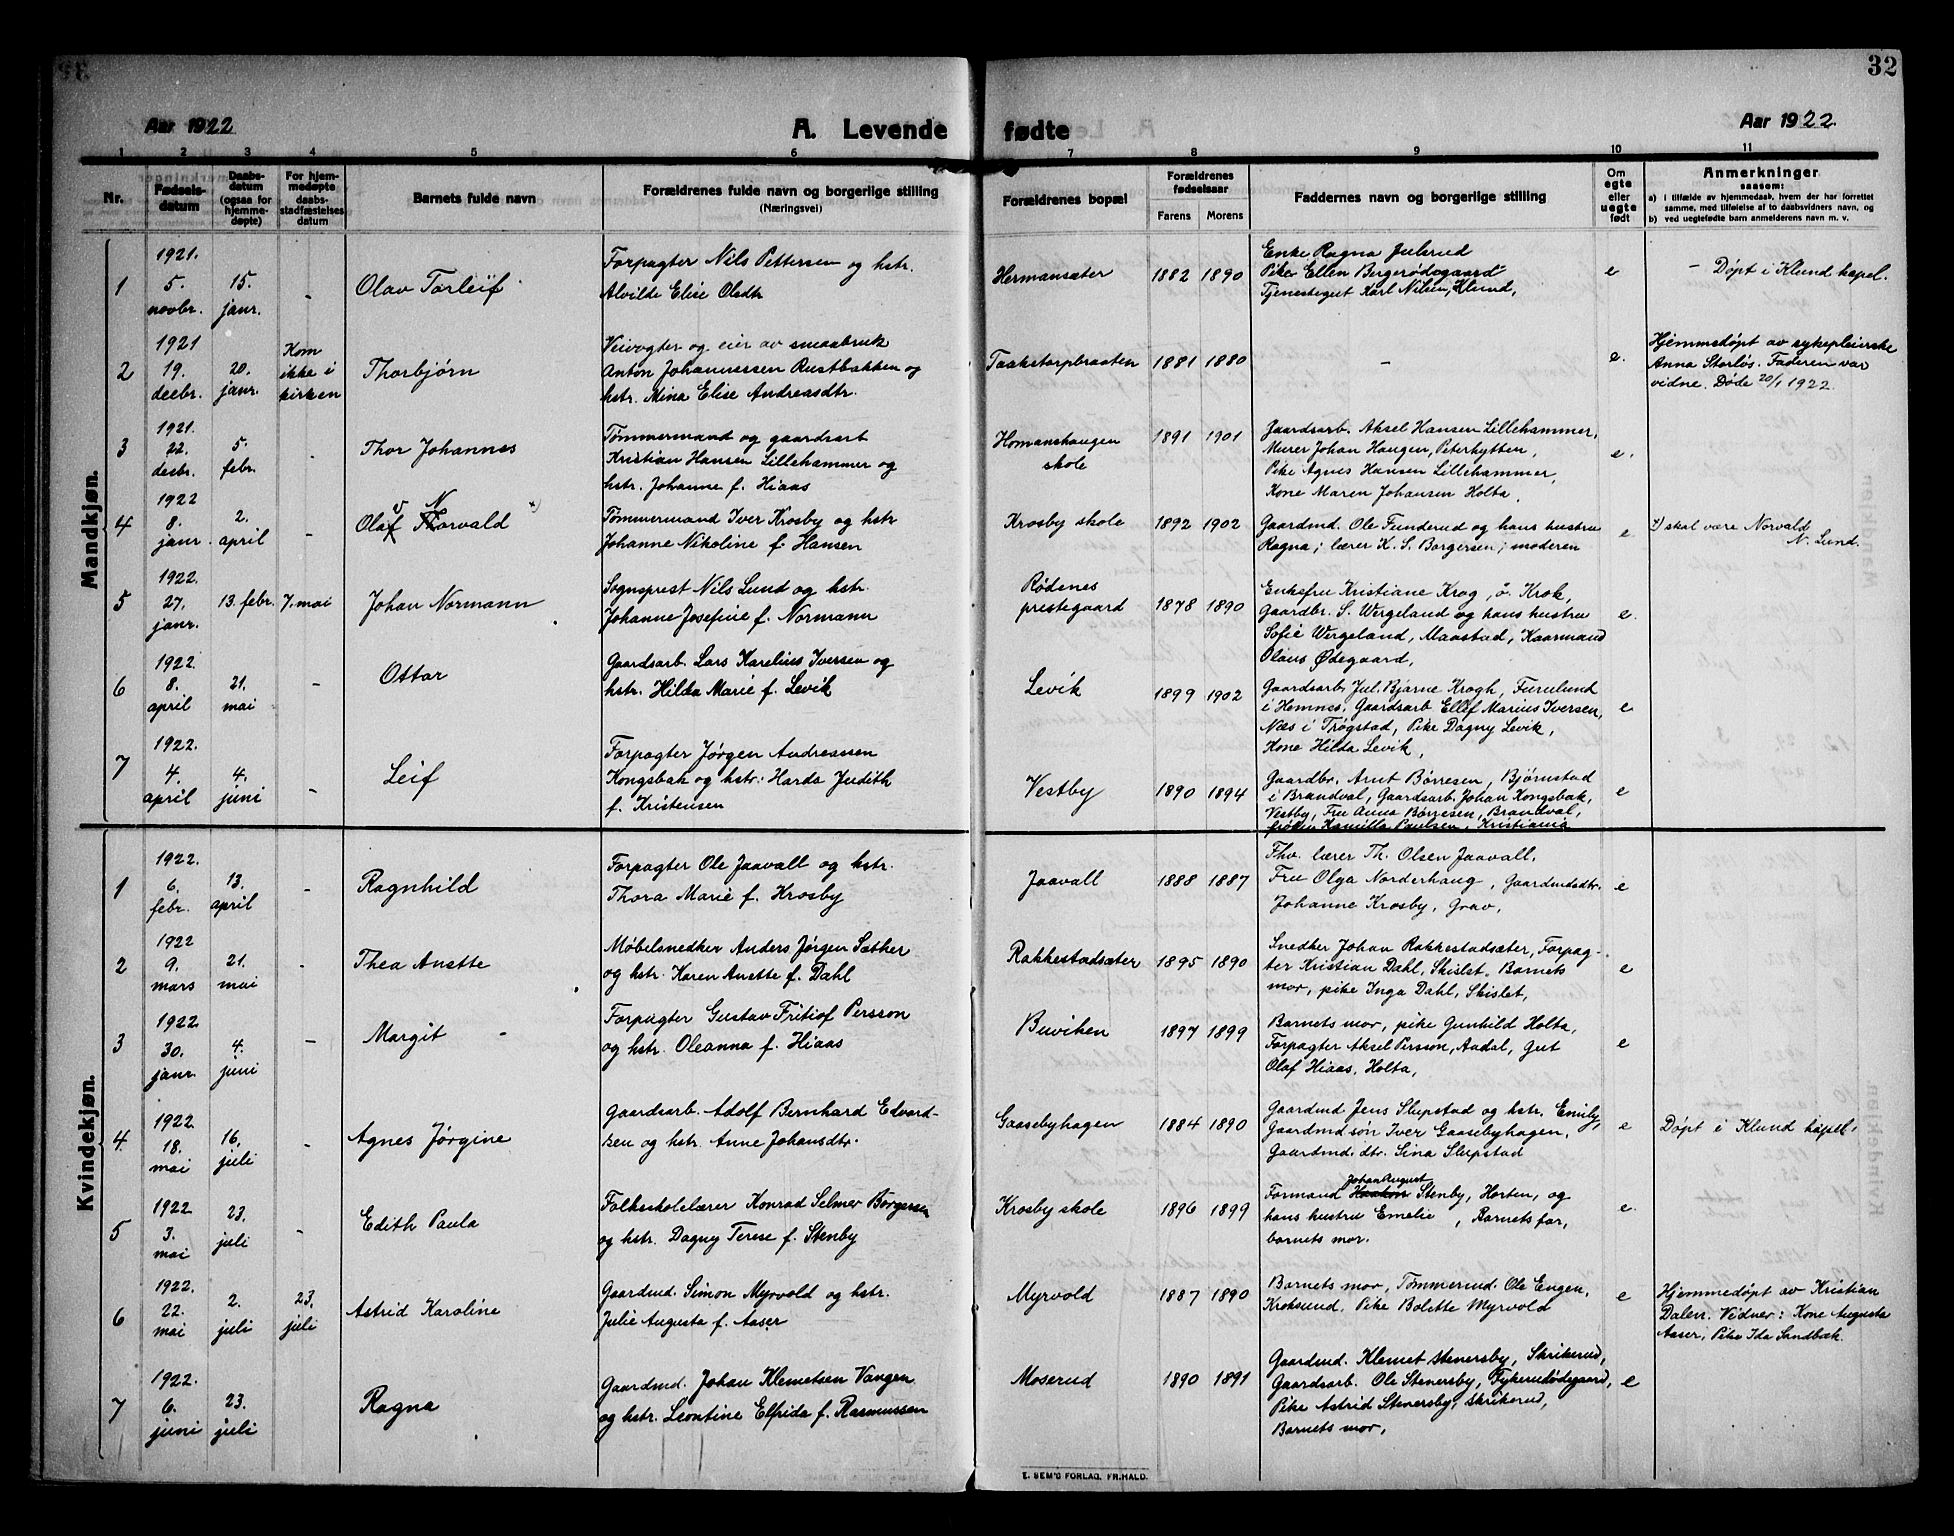 32
Aar 1922
A. Levende fødte
Aar 1922.
1 2 3 4 5 6 7 8 9 10 11
Nr.
Fødsels-
datum
Daabs-
datum
(ogsaa for
hjemme-
døpte)
For hjem-
medøpte
daabs-
stadfæstelses
datum
Barnets fulde navn
Forældrenes fulde navn og borgerlige stilling
(Næringsvei)
Forældrenes bopæl
Forældrenes
fødselsaar
Farens Morens
Faddernes navn og borgerlige stilling
Om
egte
eller
uegte
født
Anmerkninger
saasom:
a) i tilfælde av hjemmedaab, hvem der har forrettet
samme, med tilføielse af to daabsvidners navn, og
b) ved uegtefødte barn anmelderens navn m. v.
Mandkjøn.
1
1921.
5.
novbr.
15.
janr.
-
Olav Torleif
Forpagter Nils Pettersen og hstr.
Alvilde Elise Olsdtr
Hermansæter
1882 1890
Enke Ragna Julsrud
Pike Ellen Bergerødegaard
Tjenestegut Karl Nilsen, Klund,
e
- Døpt i Klund kapel.
2
1921
19.
decbr.
20.
janr.
Kom
ikke i
kirken
Thorbjørn
Veivogter og eier av smaabruk
Anton Johannessen Rustbakken og
hstr. Mina Elise Andreasdtr.
Taakstorpbraaten
1881 1880
-
e.
Hjemmedøpt av sykepleierske
Anna Storløs. Faderen var
vidne. Døde 20/1 1922.
3
1921.
22.
desbr.
5.
febr.
-
Thor Johannes
Tømmermand og gaardsarb
Kristian Hansen Lillehammer og
hstr. Johanne f. Hiaas
Homanshaugen
skole
1891 1901
Gaardsarb. Aksel Hansen Lillehammer,
Murer Johan Haugen, Peterhytten,
Pike Agnes Hansen Lillehammer,
Kone Maren Johansen Holta,
e.
4
1922
8.
janr.
2.
april
-
v N
Olaf Thorvald *)
Tømmermand Iver Krosby og hstr
Johanne Nikoline f. Hansen
Krosby skole
1892 1902
Gaardmd. Ole Funderud og hans hustru
Ragna; lærer K. S. Borgersen; moderen
e.
*) skal være Norvald
N. Lund.
5
1922.
27.
janr.
13. febr.
7. mai
Johan Normann
Sogneprest Nils Lund og hstr.
Johanne Josefine f. Normann
Rødenes
prestegaard
1878 1890
Enkefru Kristiane Krog, ö. Krok,
Gaardbr. S. Wergeland og hans hustru
Sofie Wergeland, Maastad, Kaarmand
Olaus Ødegaard,
e.
6
1922.
8.
april
21.
mai
-
Ottar
Gaardsarb. Lars Karelius Iversen og
hstr. Hilda Marie f. Levik
Levik
1899 1902
Gaardsarb. Jul. Bjarne Krogh, Furulund
i Hemnes, Gaardsarb Ellef Marius Iversen,
Næs i Trøgstad, Pike Dagny Levik,
Kone Hilda Levik,
e
7
1922.
4.
april
4.
juni
-
Leif
Forpagter Jørgen Andreassen
Kongsbak og hstr: Harda Judith
f. Kristensen
Vestby
1890 1894
Gaardbr. Arnt Børresen, Bjørnstad
i Brandval, Gaardsarb. Johan Kongsbak,
Vestby, Fru Anna Børresen, Brandval,
frøken Kamilla Paulsen, Kristiania
e
Kvindekjøn.
1
1922.
6.
febr.
13.
april
-
Ragnhild
Forpagter Ole Jaavall og hstr.
Thora Marie f. Krosby
Jaavall
1888 1887
Fhv. lærer Th. Olsen Jaavall,
Fru Olga Norderhaug, Gaardmdsdtr.
Johanne Krosby, Grav,
e
2
1922
9.
mars
21.
mai
-
Thea Anette
Møbelsnedker Anders Jørgen Sæther
og hstr. Karen Anette f. Dahl
Rakkestadsæter
1895 1890
Snedker Johan Rakkestadsæter, Forpag-
ter Kristian Dahl, Skislet, Barnets
mor, pike Inga Dahl, Skislet,
e
3
1922.
30.
janr.
4.
juni
-
Margit -
Forpagter Gustav Fritiof Persson
og hstr. Oleanna f. Hiaas
Buviken
1897 1899
Barnets mor, pike Gunhild Holta,
Forpagter Aksel Persson, Aadal, gut
Olaf Hiaas, Holta,
e
4.
1922.
18.
mai
16.
juli
-
Agnes Jørgine
Gaardsarb. Adolf Bernhard Edvard-
sen og hstr. Anne Johansdtr.
Gaasebyhagen
1884 1890
Gaardmd Jens Slupstad og hstr. Emily,
Gaardmdsøn Iver Gaasebyhagen,
Gaardmd. dtr. Sina Slupstad
e
Døpt i Klund kapel.
5
1922.
3.
mai
23.
juli
-
Edith Paula
Folkeskolelærer Konrad Selmer Borgersen
og hstr. Dagny Terese f. Stenby
Krosby skole
1896 1899
Johan August
Formand Haakon Stenby, Horten, og
hans hustru Emelie, Barnets far,
barnets mor.
e.
6
1922.
22.
mai
2.
juli
23.
juli
Astrid Karoline
Gaardmd. Simon Myrvold og hstr.
Julie Augusta f. Aaser
Myrvold
1887 1890
Barnets mor, Tømmermd. Ole Engen,
Kroksund, Pike Bolette Myrvold
e
Hjemmedøpt av Kristian
Dalen. Vidner: Kone Augusta
Aaser, Pike Ida Sandbæk.
7
1922.
6.
juni
23.
juli
Ragna
Gaardmd. Johan Klemetsen Vangen
og hstr. Leontine Elfrida f. Rasmussen
Moserud
1890 1891
Gaardmd. Klemet Stenersby, Skrikerud,
Gaardsarb. Ole Stenersby, Fykerudødegaard,
Pike Astrid Stenersby, Skrikerud,
Barnets mor,
e
E. SEM'S FORLAG, FR.HALD.